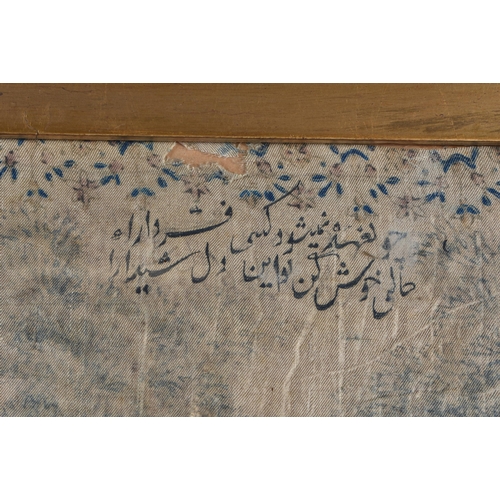 چو بعهده نمیشود کسی فردا را
حالی خوش کن تو این دل شیدا را